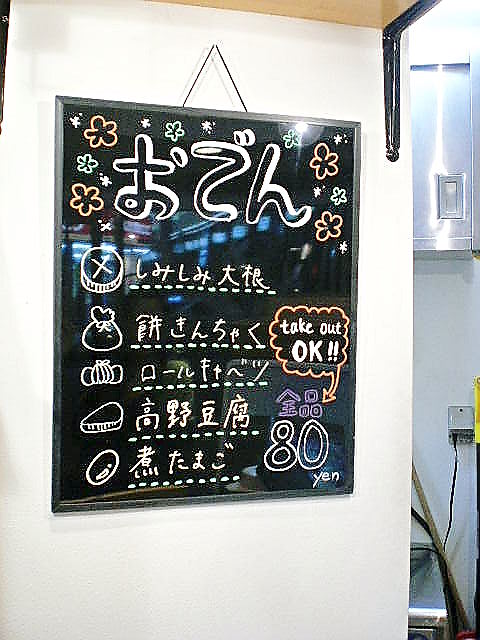 おでん
しみしみ大根
餅きんちゃく
take out
OK!!
ロールキャベツ
高野豆腐
全品
80
yen
煮たまご